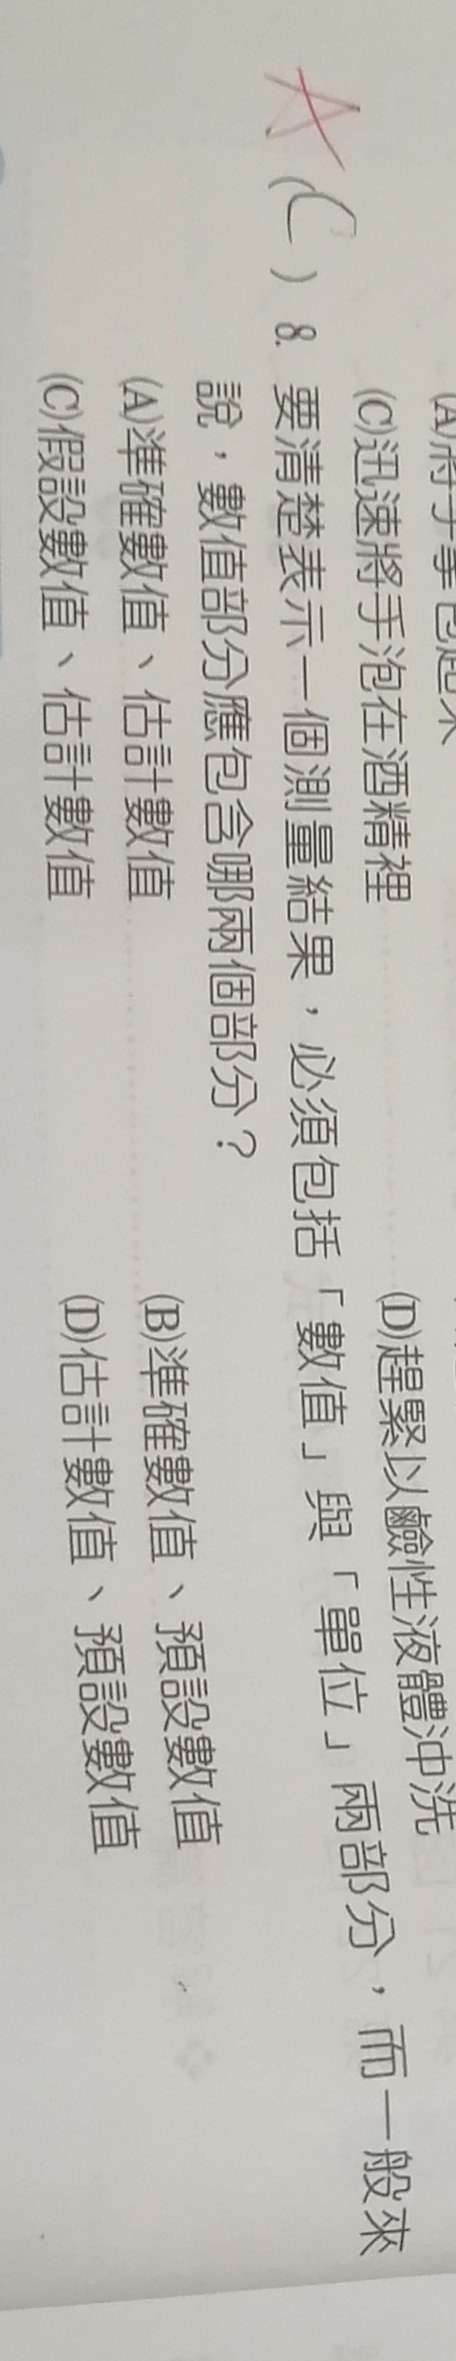 (C)迅速將手泡在酒精裡 (D)趕緊以鹼性液體沖洗
A (C) 8. 要清楚表示一個測量結果，必須包括「數值」與「單位」兩部分，而一般來
說，數值部分應包含哪兩個部分？
(A)準確數值、估計數值 (B)準確數值、預設數值
(C)假設數值、估計數值 (D)估計數值、預設數值